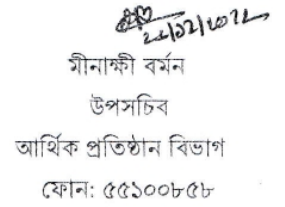 মীনাক্ষী বর্মন
উপসচিব
আর্থিক প্রতিষ্ঠান বিভাগ
ফোন: ৫৫১০০৮৫৮